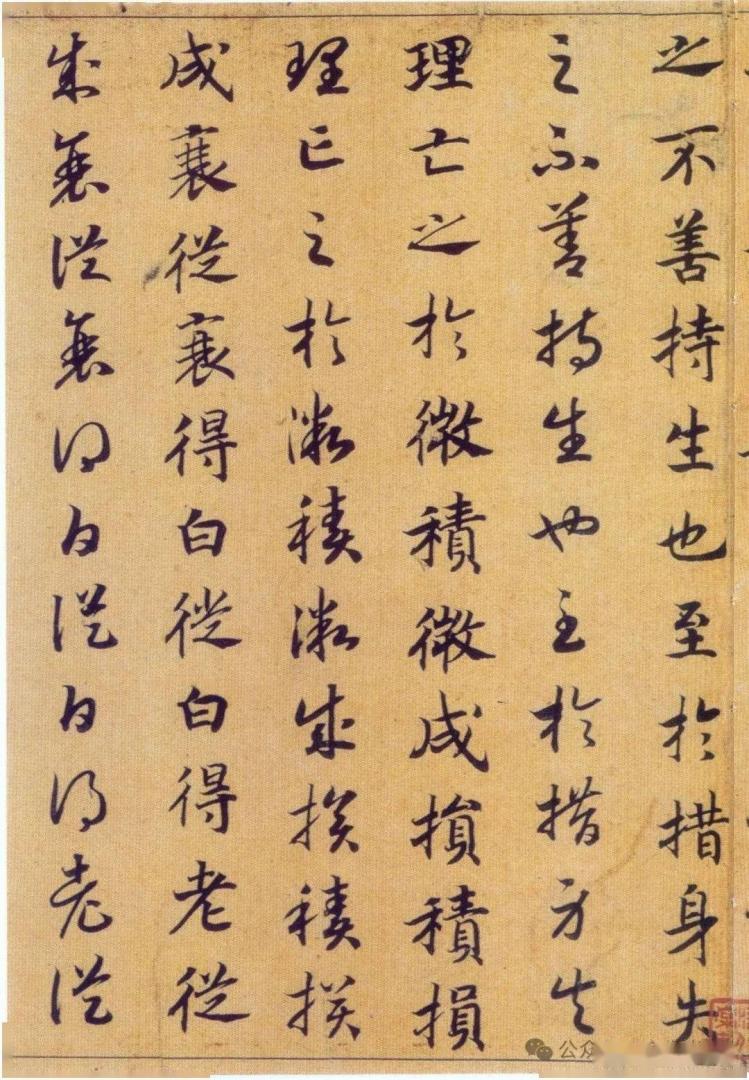 之不善持生也至於措身失
之不善持生也至於措身失
理亡之於微積微成損積損
理亡之於微積微成損積損
成衰從衰得白從白得老從
成衰從衰得白從白得老從
公众